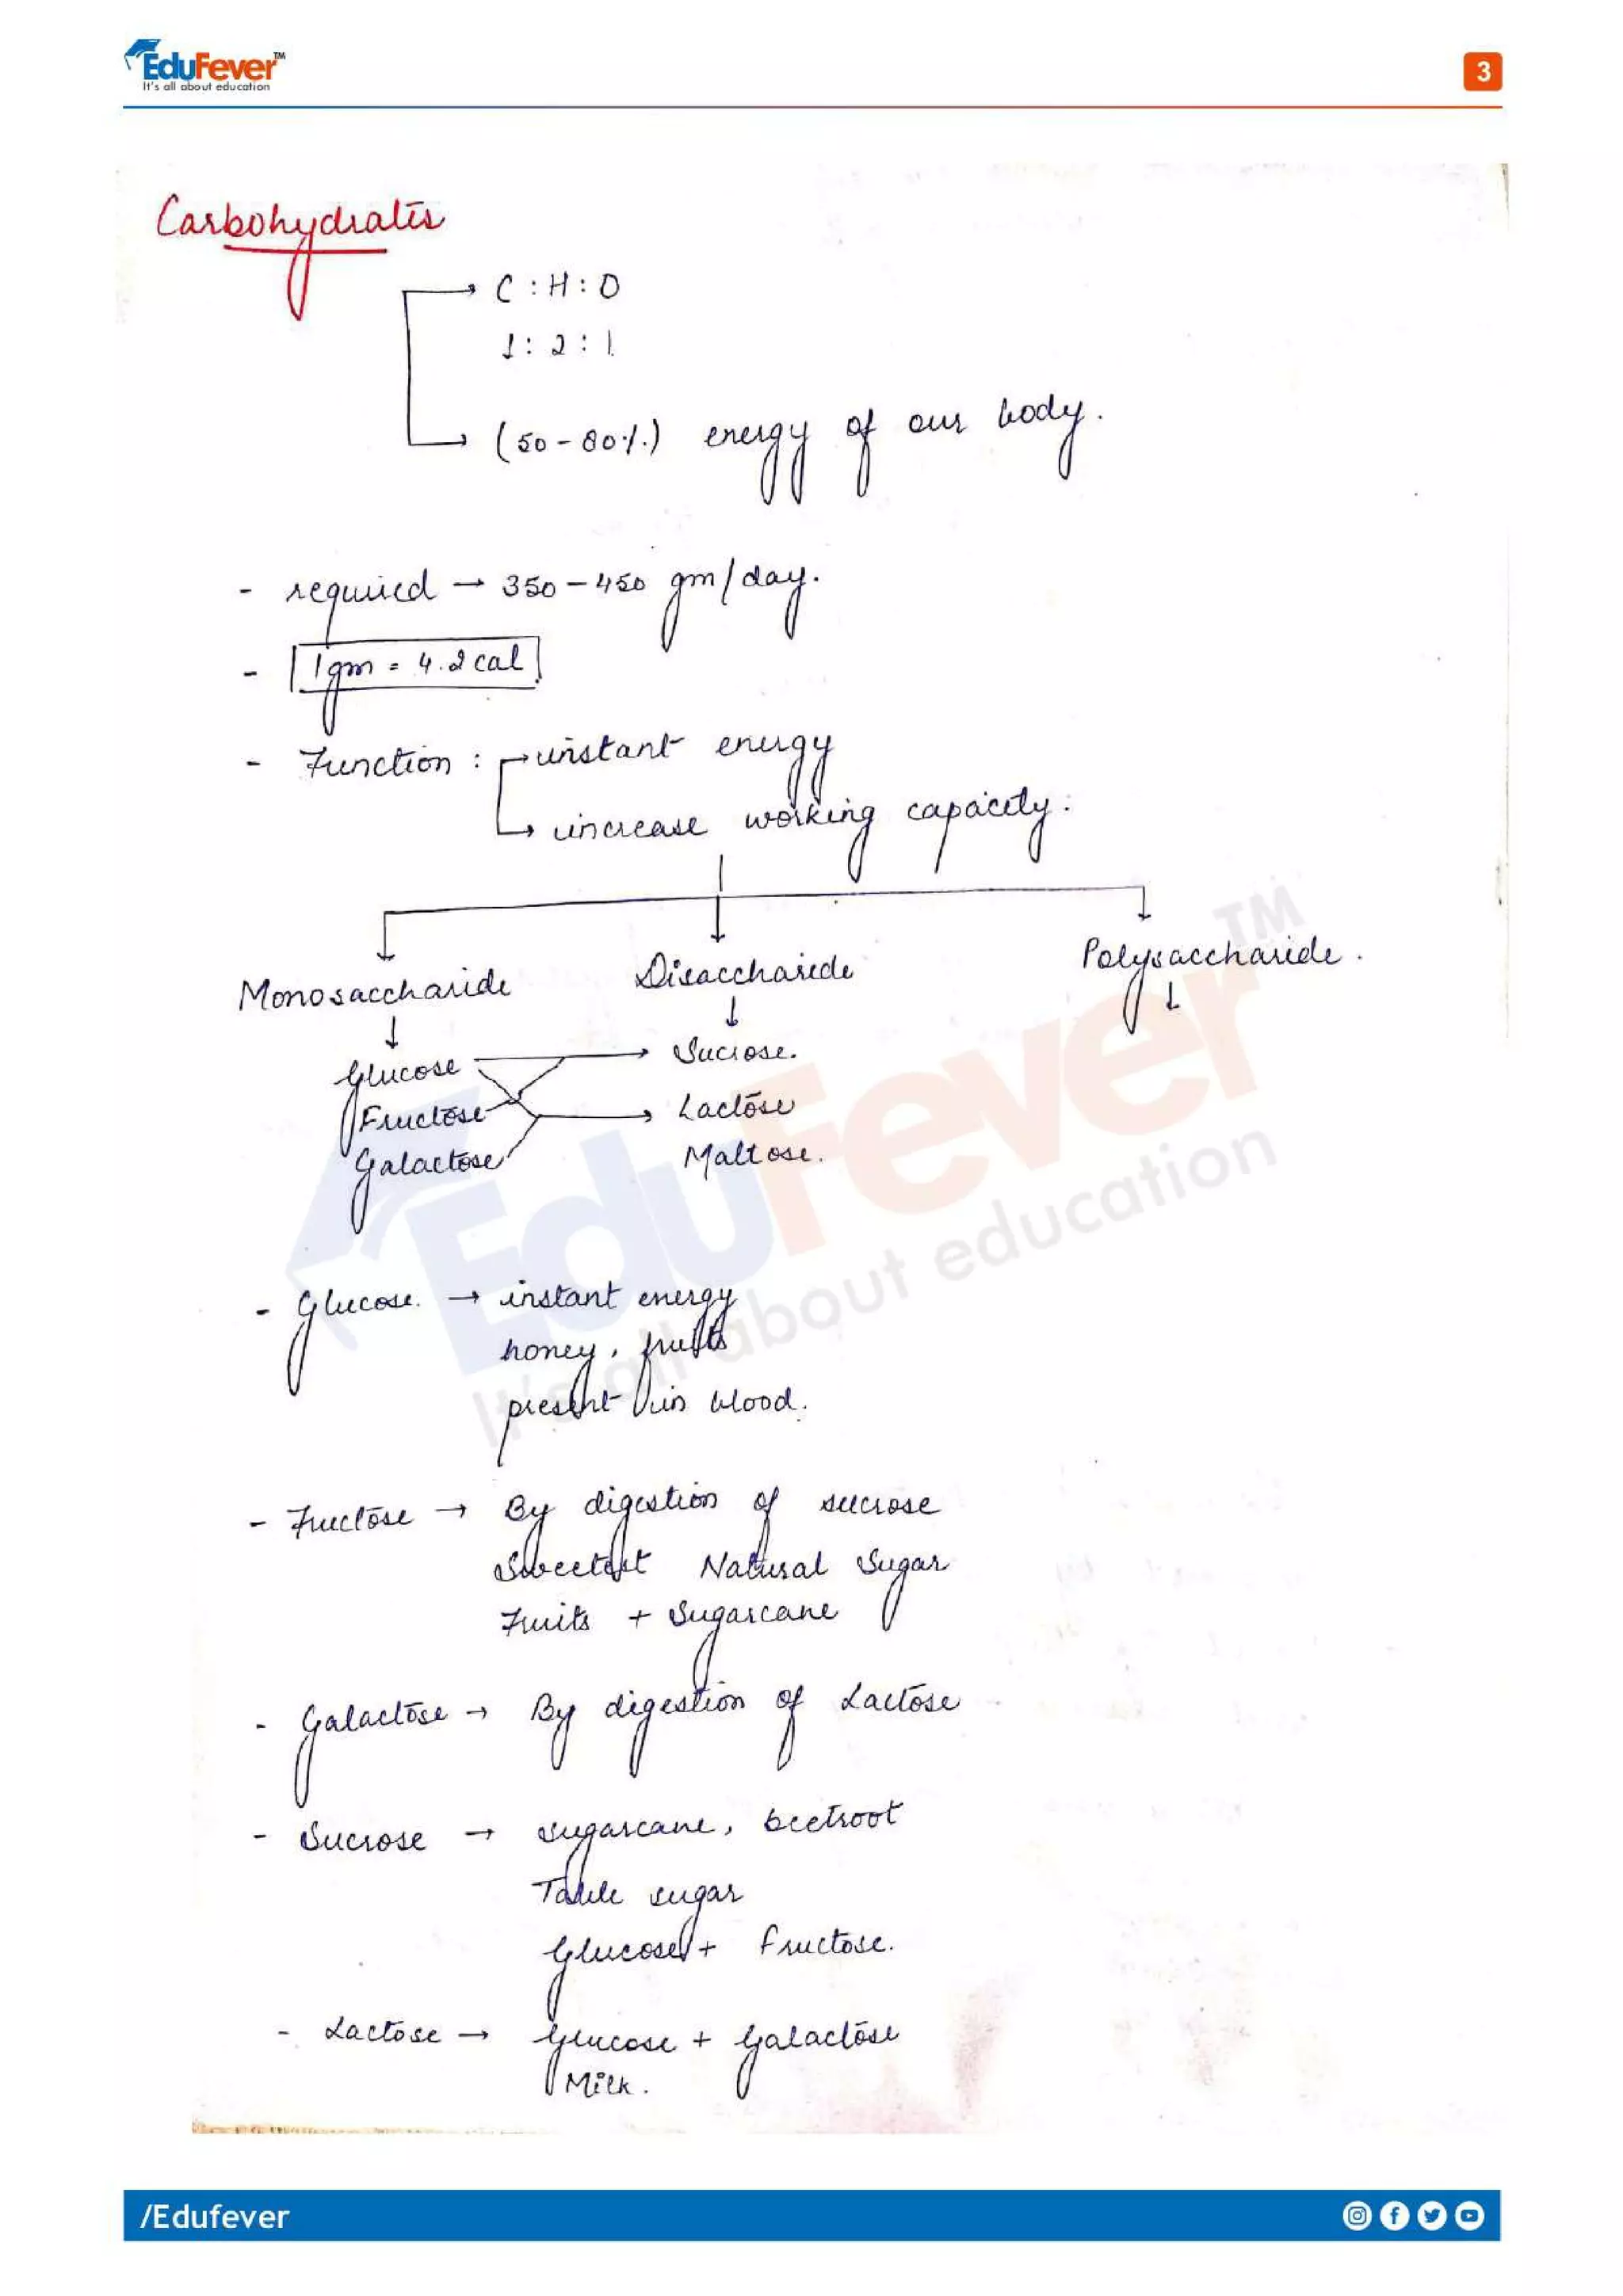 EduFever™
It's all about education
3
Carbohydrates
→ C : H : O
1 : 2 : 1
→ (50 - 80%) energy of our body.
- required → 350 - 450 gm/day.
- 1gm = 4.2 cal
- Function : → instant energy
→ increase working capacity.
Monosaccharide Disaccharide Polysaccharide.
Glucose → Sucrose.
Fructose → Lactose
Galactose Maltose.
- Glucose. → instant energy
honey, fruits
present in blood.
- Fructose → By digestion of sucrose
Sweetest Natural Sugar
Fruits + Sugarcane
- Galactose → By digestion of Lactose
- Sucrose → sugarcane, beetroot
Table sugar
Glucose + Fructose.
- Lactose → Glucose + Galactose
Milk.
EduFever™
It's all about education
/Edufever